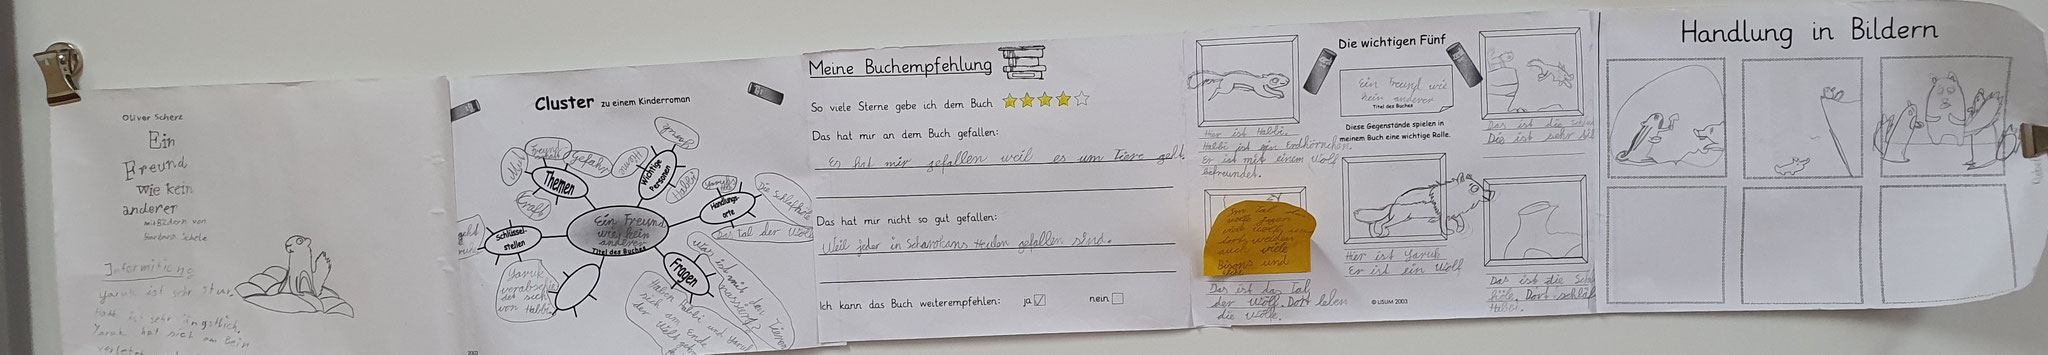 Oliver Scherz
Ein
Freund
wie kein
anderer
mit Bildern von
Barbara Scholz
Informitione
Yaruk ist sehr stur.
Habbi ist sehr ängstlich.
Yaruk hat sich am Bein
verletzt
Cluster zu einem Kinderroman
Themen
Mut
Freundschaft
Gefahr
Kraft
Wichtige
Personen
Habbi
Handlungs-
orte
Die Schlafhöle
Das Tal der Wölfe
Schlüssel-
stellen
Yaruk
verabschie
det sich
von Habbi.
Ein Freund
wie kein
anderer
Titel des Buches
Fragen
Was ist mit den Tieren
passiert?
Haben Habbi und Yaruk
sich am Ende
der Welt
Meine Buchempfehlung
So viele Sterne gebe ich dem Buch
Das hat mir an dem Buch gefallen:
Es hat mir gefallen weil es um Tiere geht.
Das hat mir nicht so gut gefallen:
Weil jeder in Scharokans Heulen gefallen sind.
Ich kann das Buch weiterempfehlen: ja nein
Die wichtigen Fünf
Ein Freund wie
kein anderer
Titel des Buches
Diese Gegenstände spielen in
meinem Buch eine wichtige Rolle.
Hier ist Habbi.
Habbi ist ein Erdhörnchen.
Er ist mit einem Wolf
befreundet.
Das ist die
Die ist sehr
Im Tal der
auch viele
Bisons und
Das ist das Tal
der Wölf. Dort leben
die Wölfe.
Hier ist Yaruk
Er ist ein Wolf
© LISUM 2003
Das ist die Schlaf
höle. Dort schläft
Habbi.
Handlung in Bildern